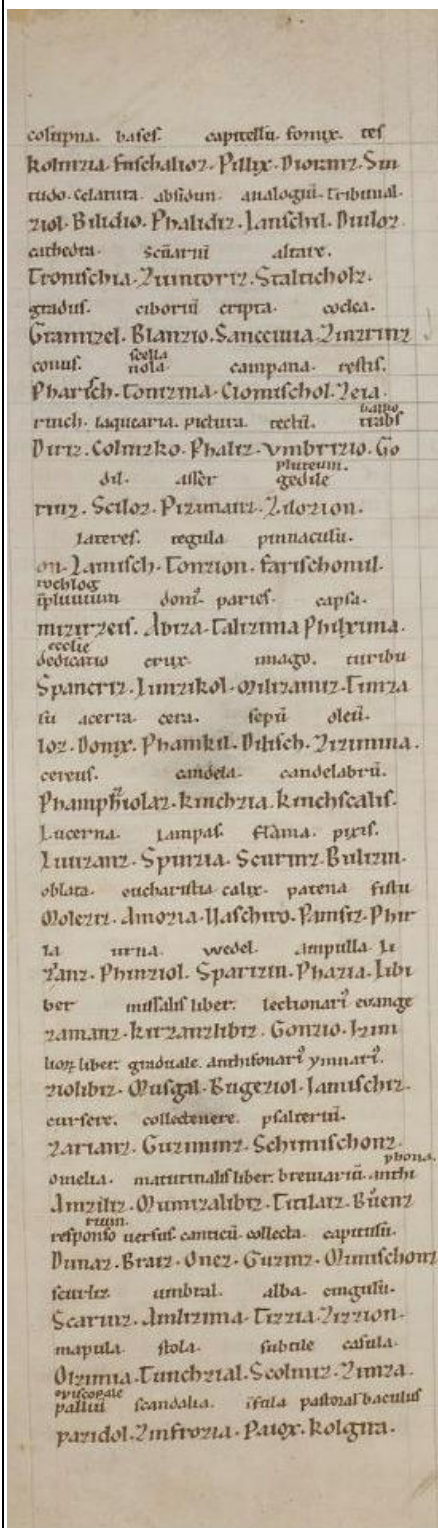 columpna. bases. capitellū. fornix. tes
kolinzia. Fuschalioz. Pillix. Diorniz. Sin
tudo. celatura. absidun. analogiū. tribunal.
ziol. Bilidio. Phalidiz. Lanschil. Diuloz.
cathedra. altare.
Tronischia. Zuintoriz. Stalticholz.
gradus. ciboriū cripta. coclea.
Granizel. Blanzio. Sancciuia. Zinzrinz
scella
conus. nola. campana. restis.
Pharisch. Tonizma. Clomischol. Zeia
balbo
rinch. laquearia. pictura. tectū. trabs
Diriz. Colinzko. Phaliz. vmbrizio. Go
plureum.
dil. asser gedile
rinz. Sciloz. Pizimanz. Zilozion.
Lateres. regula pinnaculū.
on. Lamisch. Tonzion. farischomil.
īpluuium dom9. paries. capsa.
mizirzeis. Abiza. Talizima Philxima.
ecclie
dedicatio crux. imago. turibu
Spaneriz. Linzikol. Milizamiz. Timza
lū acerra. cera. sepū oleū.
loz. Donix. Phamkil. Dilisch. Zizimina.
cereus. candela. candelabrū.
Phamphiolaz. kinchzia. kinchscalis.
Lucerna. Lampas. Flāma. pixis.
Luuzanz. Spinzia. Scurinz. Bulizin.
oblata. eucharistia calix. patena fistu
Moleziz. Amozia. Naschiwo. Panisiz. Phir
la urna. wedel. Ampulla. Li
zanz. Phinziol. Sparizin. Phazia. Libi
ber missalis liber. lectionari9 evange
zamanz. kirzanzlibiz. Gonzio. Izim
lior liber. graduale. anthifonari9 ymnari9.
ziolibiz. Musgal. Bugeziol. Iamischiz.
cursere. collectenere. psalteriū.
zarianz. Guziminz. Schimischonz.
phona.
omelia. maturinalis liber. breuiariū. anthi
Amziliz. Mumizalibiz. Titilaiz. Buenz
rium.
responso uersus. canticū. collecta. capitulū.
Dunaz. Braiz. Onez. Guzinz. Minischonz
scurliz umbral. alba. cingulū.
Scariuz. Amlizima. Tizzia. Zizzion.
mapula. stola. subtile casula.
Olzimia. Tunchzial. Scolmiz. Zimza.
episcopale
palliū scandalia. īfula pastoral baculus
pazidol. Zinfrozia. Paiox. Kolgira.